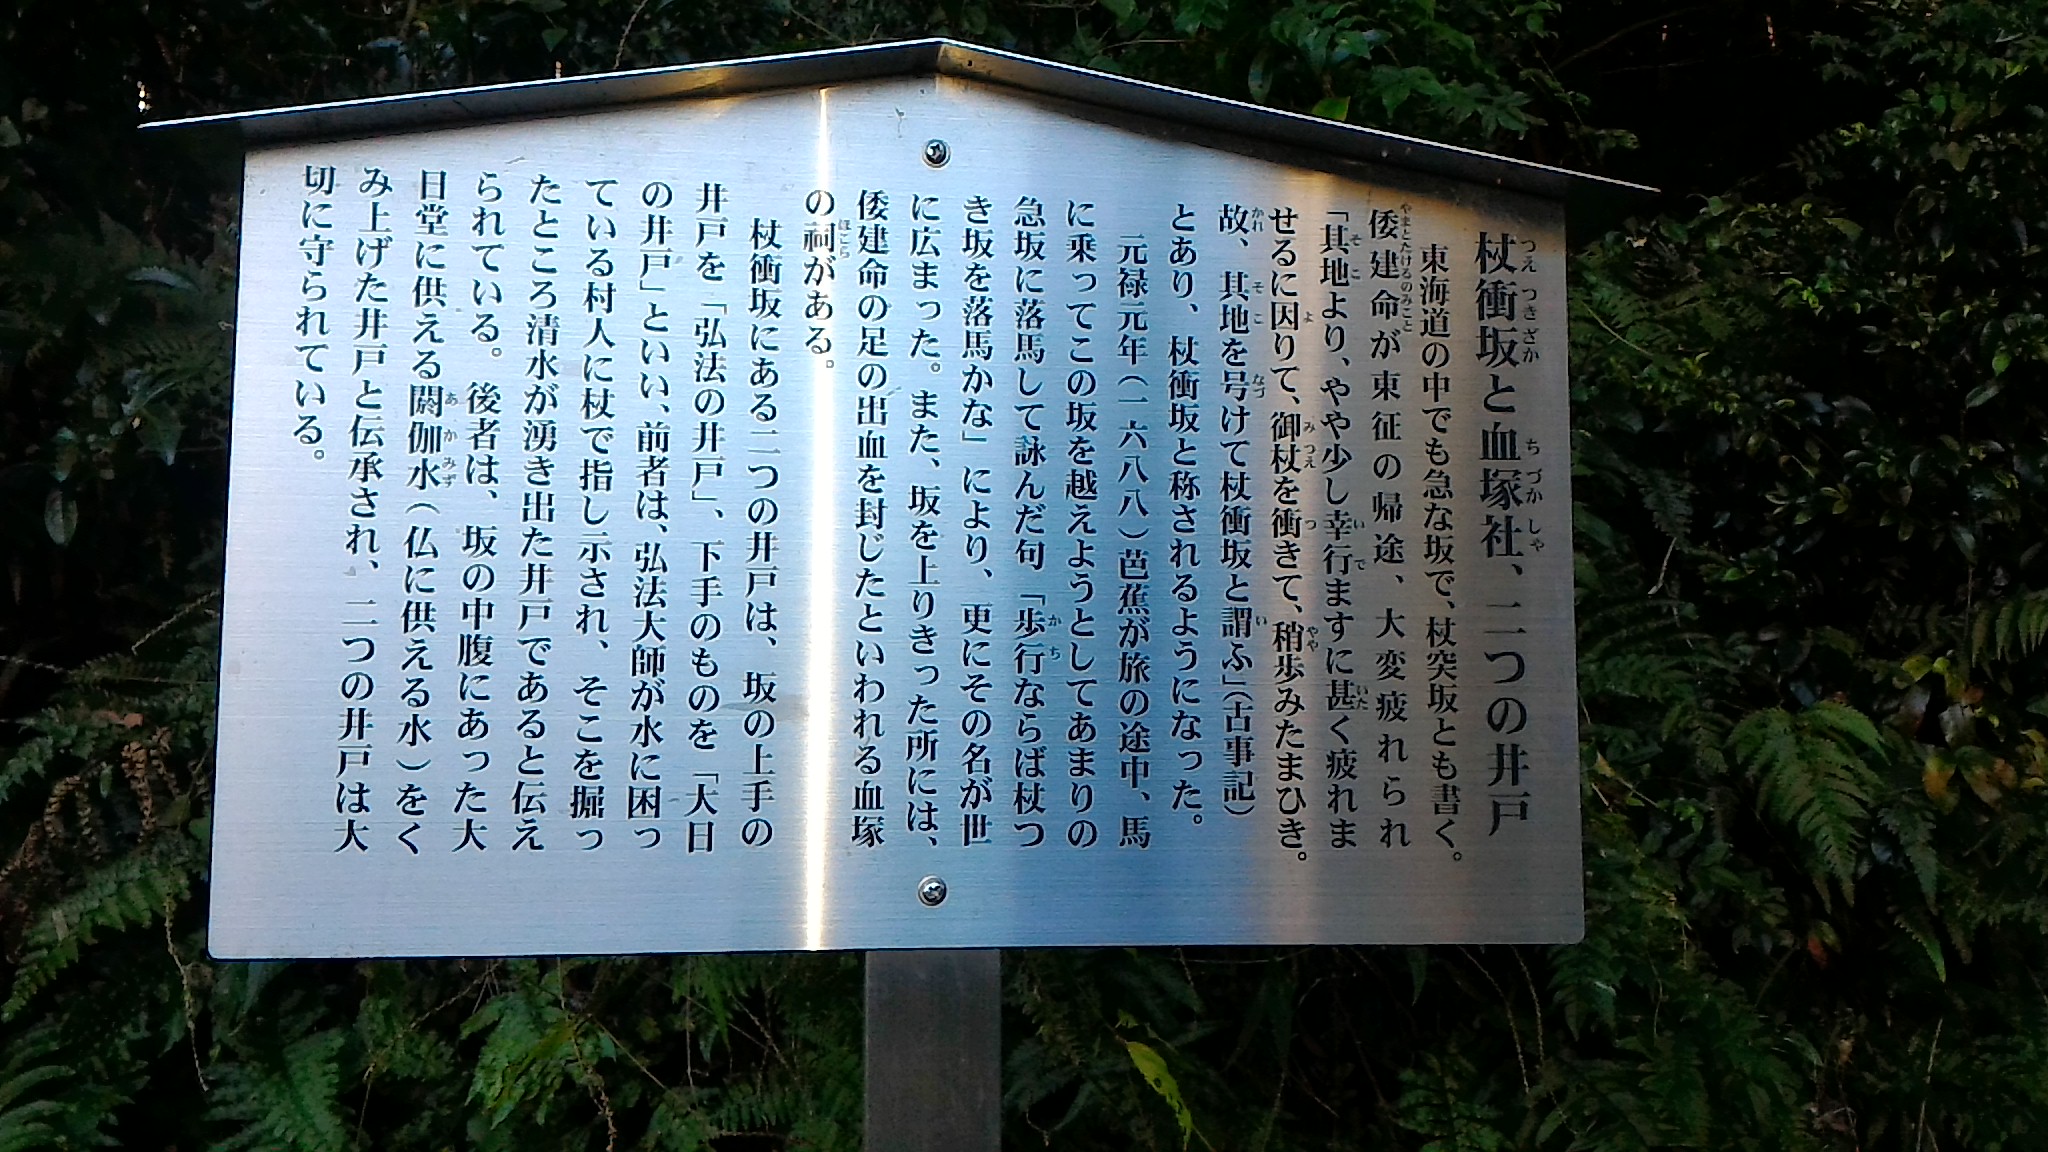 杖衝坂と血塚社、二つの井戸
東海道の中でも急な坂で、杖突坂とも書く。
倭建命が東征の帰途、大変疲れられ
「其地より、やや少し幸行ますに甚く疲れま
せるに因りて、御杖を衝きて、稍歩みたまひき。
故、其地を号けて杖衝坂と謂ふ」(古事記)
とあり、杖衝坂と称されるようになった。
元禄元年(一六八八)芭蕉が旅の途中、馬
に乗ってこの坂を越えようとしてあまりの
急坂に落馬して詠んだ句「歩行ならば杖つ
き坂を落馬かな」により、更にその名が世
に広まった。また、坂を上りきった所には、
倭建命の足の出血を封じたといわれる血塚
の祠がある。
杖衝坂にある二つの井戸は、坂の上手の
井戸を「弘法の井戸」、下手のものを「大日
の井戸」といい、前者は、弘法大師が水に困っ
ている村人に杖で指し示され、そこを掘っ
たところ清水が湧き出た井戸であると伝え
られている。後者は、坂の中腹にあった大
日堂に供える閼伽水(仏に供える水)をく
み上げた井戸と伝承され、二つの井戸は大
切に守られている。